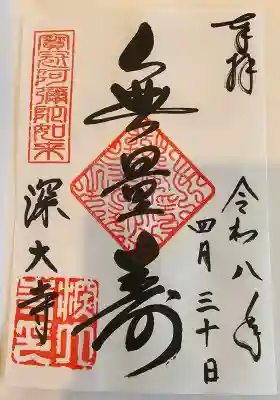 奉拝
令和八年
四月三十日
無量寿
寳冠阿彌陀如来
深大寺